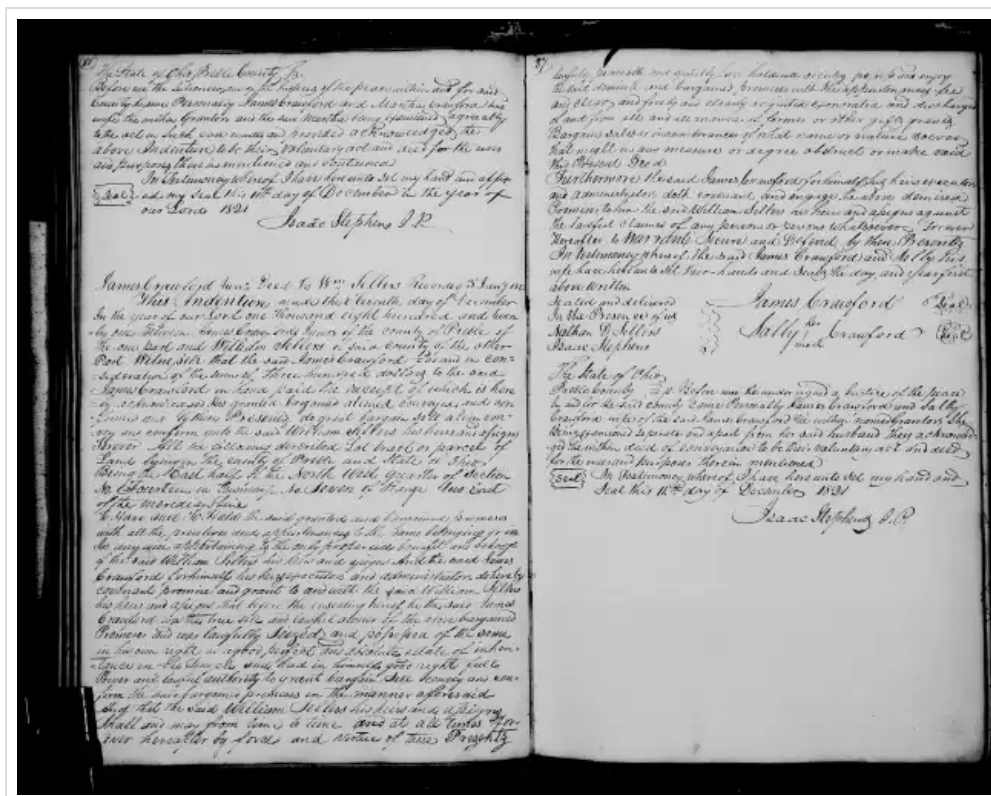 86
The State of Ohio Preble County Ss.
Before me the subscriber one of the Justices of the peace within and for said
County Came Personally James Crawford and Martha Crawford his
wife the within Grantors and the said Martha being examined agreeably
to the act in such case made and provided acknowledged the
above Indenture to be their voluntary act and deed for the uses
and purposes therein mentioned and contained
In Testimony whereof I have hereunto set my hand and affix
Seal ed my Seal this 11th day of December in the year of
our Lord 1821
Isaac Stephens J.P.
James Crawford Junr Deed to Wm Sellers Recorded 3 Jany
This Indenture made the Eleventh day of December
In the year of our Lord one thousand eight hundred and twen
ty one Between James Crawford Junior of the county of Preble of
the one part and William Sellers of said county of the other
Part Witnesseth that the said James Crawford for and in con-
-sideration of the sum of three hundred dollars to the said
James Crawford in hand paid the receipt of which is here
by acknowledged has granted bargained aliened conveyed and con
firmed and by these Presents do grant bargain sell alien con
vey and confirm unto the said William Sellers his heirs and assigns
forever All the following described Lot tract or parcel of
Land lying in the county of Preble and State of Ohio
Being the East half of the North West quarter of Section
No fourteen in Township No Seven of Range two East
of the meredian line
To Have and To Hold the said granted and Premises
with all the privileges and appurtenances to the same belonging or in
In any wise appertaining to the only proper use benefit and behoof
of the said William Sellers his heirs and assigns And the said James
Crawford for himself his heirs executors and administrators do hereby
covenant promise and grant to and with the said William Sellers
his heirs and assigns that before the ensealing hereof he the said James
Crawford was the true sole and lawful owner of the above bargained
Premises and was lawfully Seized and possessed of the same
in his own right in a good perfect and absolute estate of inheri
tance in Fee Simple and had in himself good right full
Power and lawful authority to grant bargain Sell Convey and con-
firm the said bargained premises in the manner aforesaid
and that the said William Sellers his heirs and assigns
Shall and may from time to time and at all times for
ever hereafter by force and virtue of these Presents
87
lawfully peaceably and quietly have hold use occupy possess and enjoy
the said demised and bargained premises with the appurtenances free
and clear and freely and clearly acquited exonerated and discharged
of and from all and all manner of former or other gifts grants
Bargains sales or incumbrances of what name or nature soever
that might in any measure or degree obstruct or make void
this Present Deed
Furthermore the said James Crawford for himself his heirs executors
and administrators doth covenant and engage the above demised
Premises to him the said William Sellers his heirs and assigns against
the lawful claimes of any person or persons whatsoever
Hereafter to Warrant Secure and Defend by these Presents
In testimony whereof the said James Crawford and Sally his
wife have hereunto set their hands and Seals the day and year first
above written
Sealed and delivered
In the Presence of us
Nathan D Sellers
Isaac Stephens
James Crawford Seal
Sally her mark Crawford Seal
The State of Ohio
Preble County Ss Before me the undersigned a Justice of the peace
in and for the said county came Personally James Crawford and Sally
Crawford wife of the said James Crawford the within named Grantors She
Being examined Seperate and apart from her said husband they acknowled
ged the within deed of conveyance to be their voluntary act and deed
for the use and Purposes therein mentioned
Seal In Testimony whereof I have hereunto set my hand and
Seal this 11th day of December 1821
Isaac Stephens J.P.